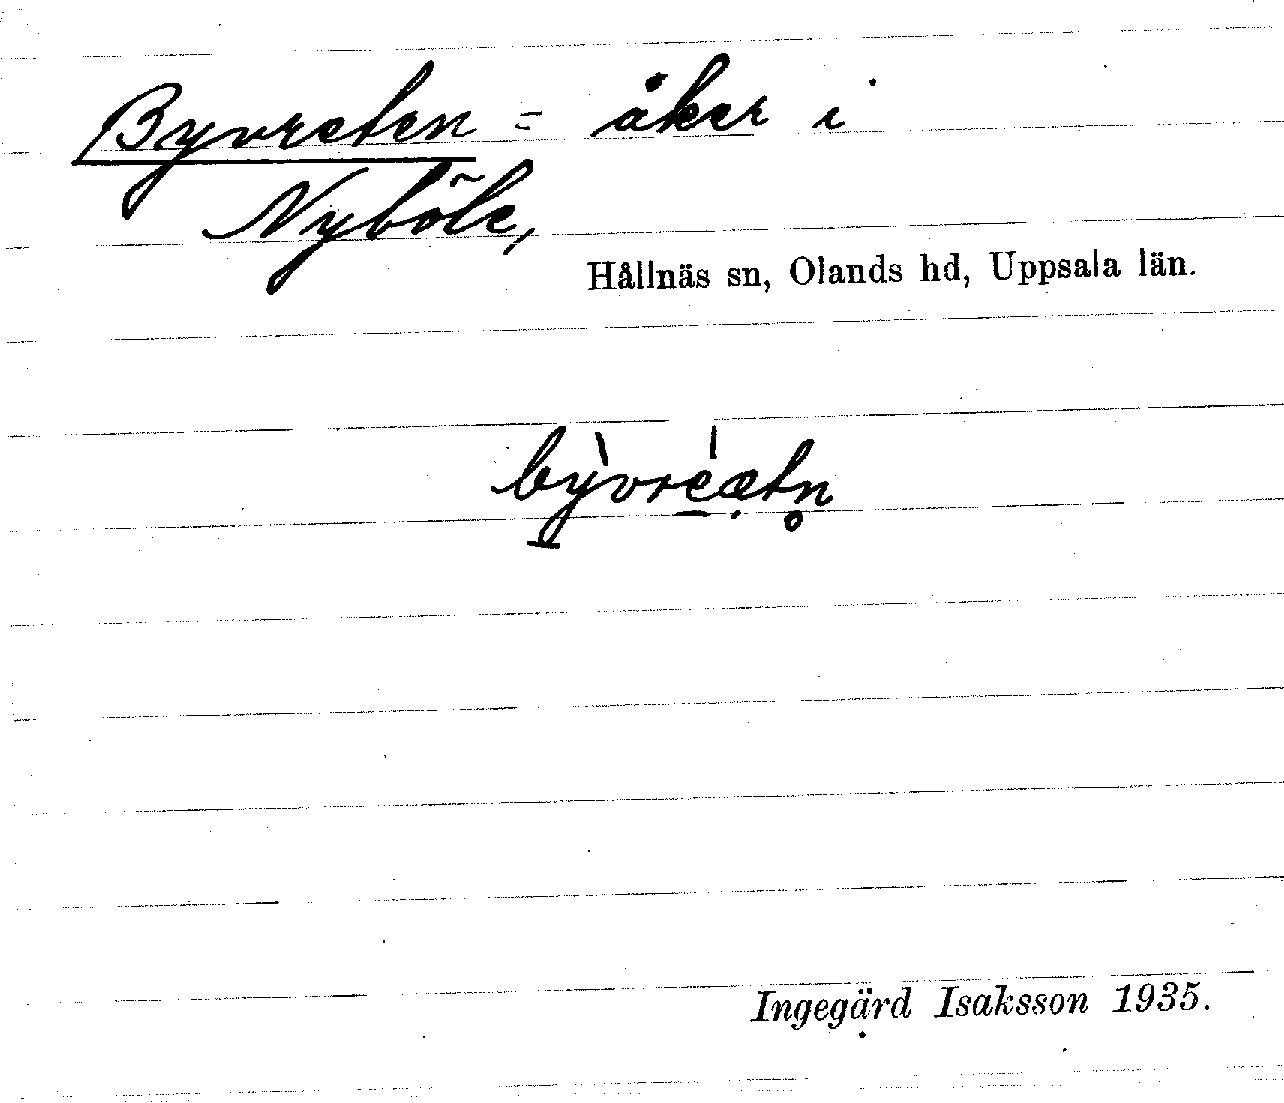 Byvreten = åker i
Nyböle,
Hållnäs sn, Olands hd, Uppsala län.
bỳ̠vré̠æ̣tn̥
Ingegärd Isaksson 1935.